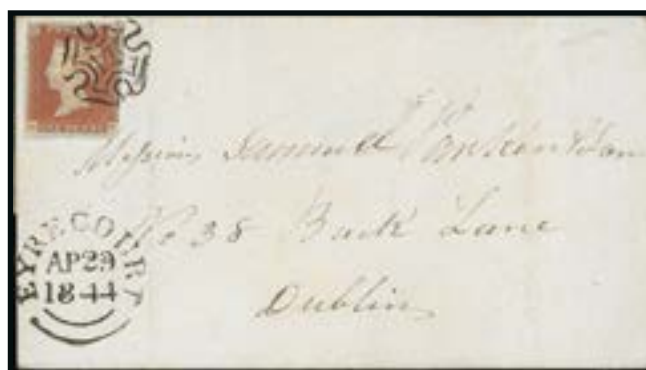 Messrs Samuel
No 38 Back Lane
Dublin
EYRECOURT
AP29
1844